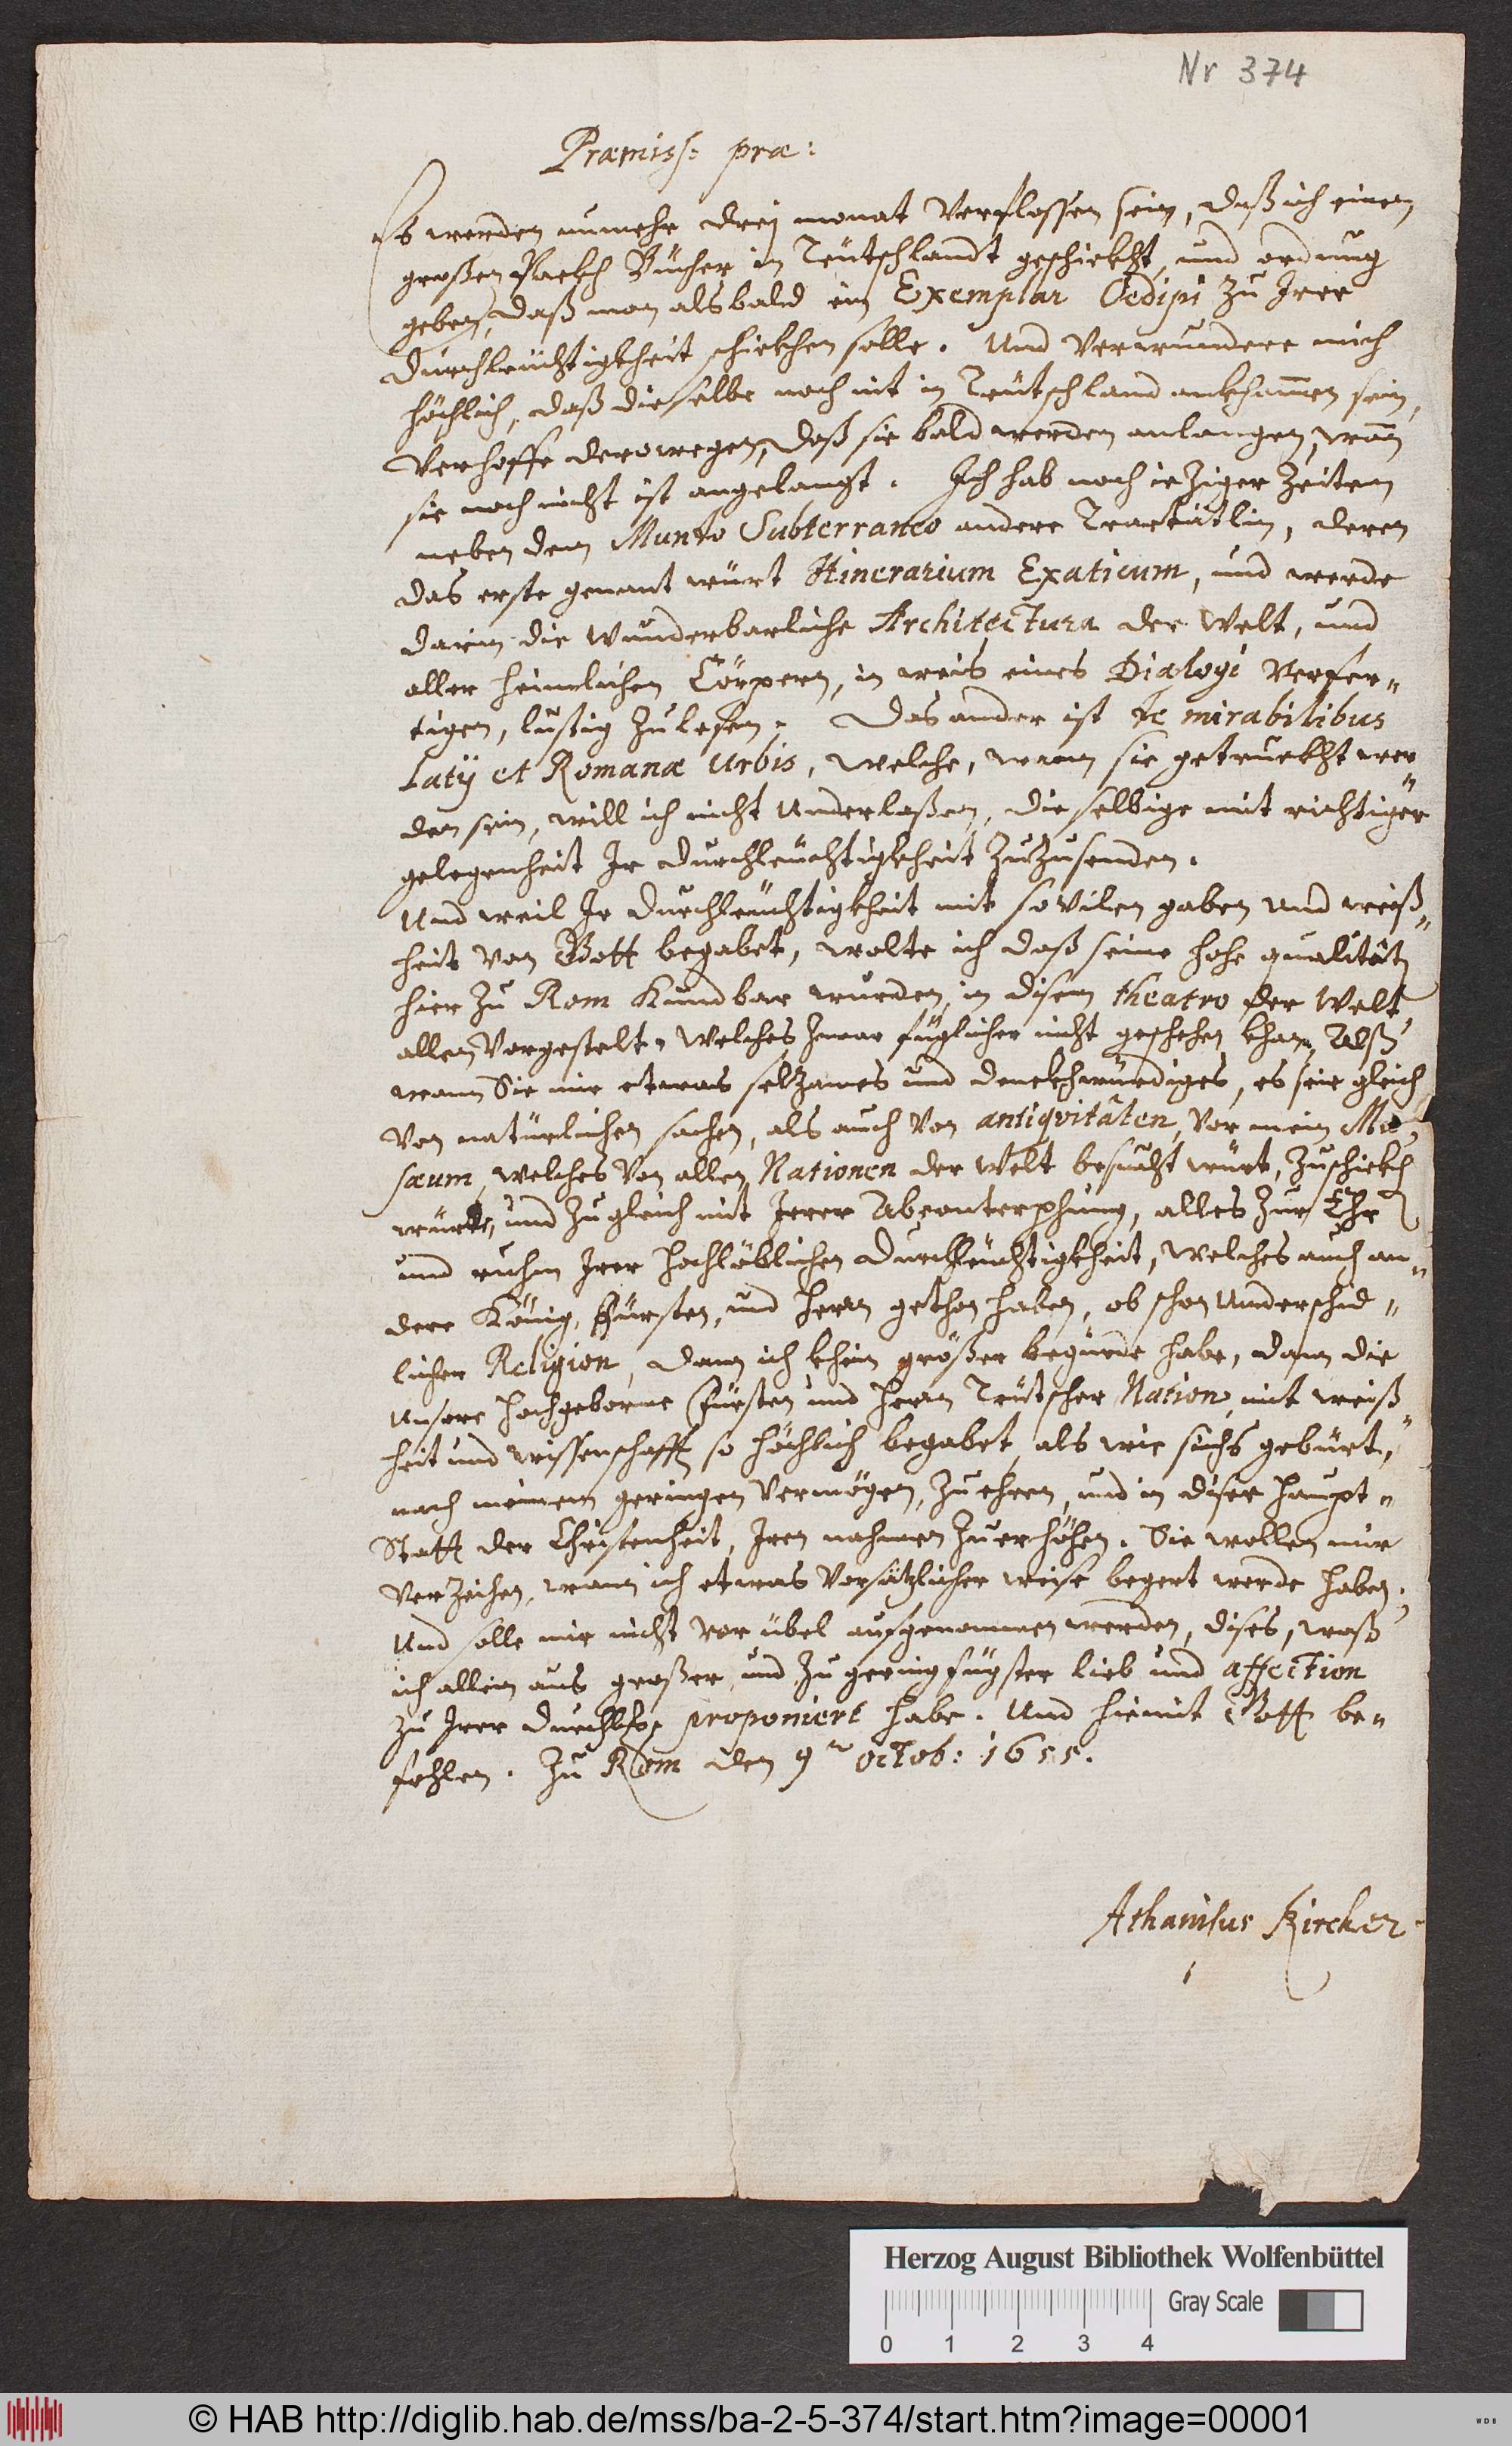 Nr 374
Præmiss: præ:
Es werden nunmehr drej monat Verflossen sein, daß ich einen
großen Packh Bücher in Teütschlandt geschickht, und ordnung
geben, daß man alsbald ein Exemplar Oedipi zu Irer
Durchleüchtigkheit schickhen solle. Und Verwundere mich
höchlich, daß dieselbe noch nit in Teütschland ankhommen sein,
Verhoffe derowegen, daß sie bald werden anlangen, wan
sie noch nicht ist angelangt. Ich hab noch ieziger Zeiten
neben dem Mundo Subterraneo andere Tractätlin, deren
das erste genant würt Itinerarium Exaticum, und werde
darin die wunderbarliche Architectura der Welt, und
aller himmlischen Cörpern, in weis eines Dialogi Verfer„
tigen, lustig zu lesen. Das ander ist de mirabilibus
Latij et Romanæ Urbis, welche, wann sie getruckht wer„
den sein, will ich nicht Underlaßen, dieselbige mit richtiger
gelegenheit Ir Durchleüchtigkheit zuzusenden.
Und weil Ir Durchleüchtigkheit mit so vilen gaben und weiß„
heit von Gott begabet, wolte ich daß seine hohe qualitäten
hier zu Rom Kundbar wurden, in disem theatro der Welt
allen Vorgestelt. Welches zwar füglicher nicht geschehen khan, Alß
wann Sie mir etwas selzames und denckhwürdiges, es seie gleich
von natürlichen sachen, als auch von antiqvitäten, vor mein Mu„
sæum, welches von allen Nationen der Welt besucht würt, zuschickhen
würde, und zugleich mit Irer Abconterphung, alles zur Ehr
und ruhm Irer Hochlöblichen Durchleüchtigkheit, welches auch an„
dere König, Fürsten, und Herrn gethon haben, ob schon Underschid„
licher Religion, dann ich khein größer begürde habe, dann die
Unsere Hochgeborne Fürsten und Herrn Teütscher Nation, mit weiß„
heit und wissenschafft so höchlich begabet, als wie sichs gebürt,
nach meinem geringen Vermögen, zu ehren, und in diser Haupt„
Statt der Christenheit, Iren nahmen zu erhöhen. Sie wollen mir
Verzeihen, wann ich etwas Vorsätzlicher weise begert werde haben.
Und solle mir nicht vor übel aufgenommen werden, dises, waß
ich allein aus großer, und zu geringfügster lieb und affection
zu Irer Durchl. proponiert habe. Und hiemit Gott be„
fohlen. Zu Rom den 9 octob: 1655.
Athanisus Kircher
Herzog August Bibliothek Wolfenbüttel
Gray Scale
0 1 2 3 4
© HAB http://diglib.hab.de/mss/ba-2-5-374/start.htm?image=00001
WDB